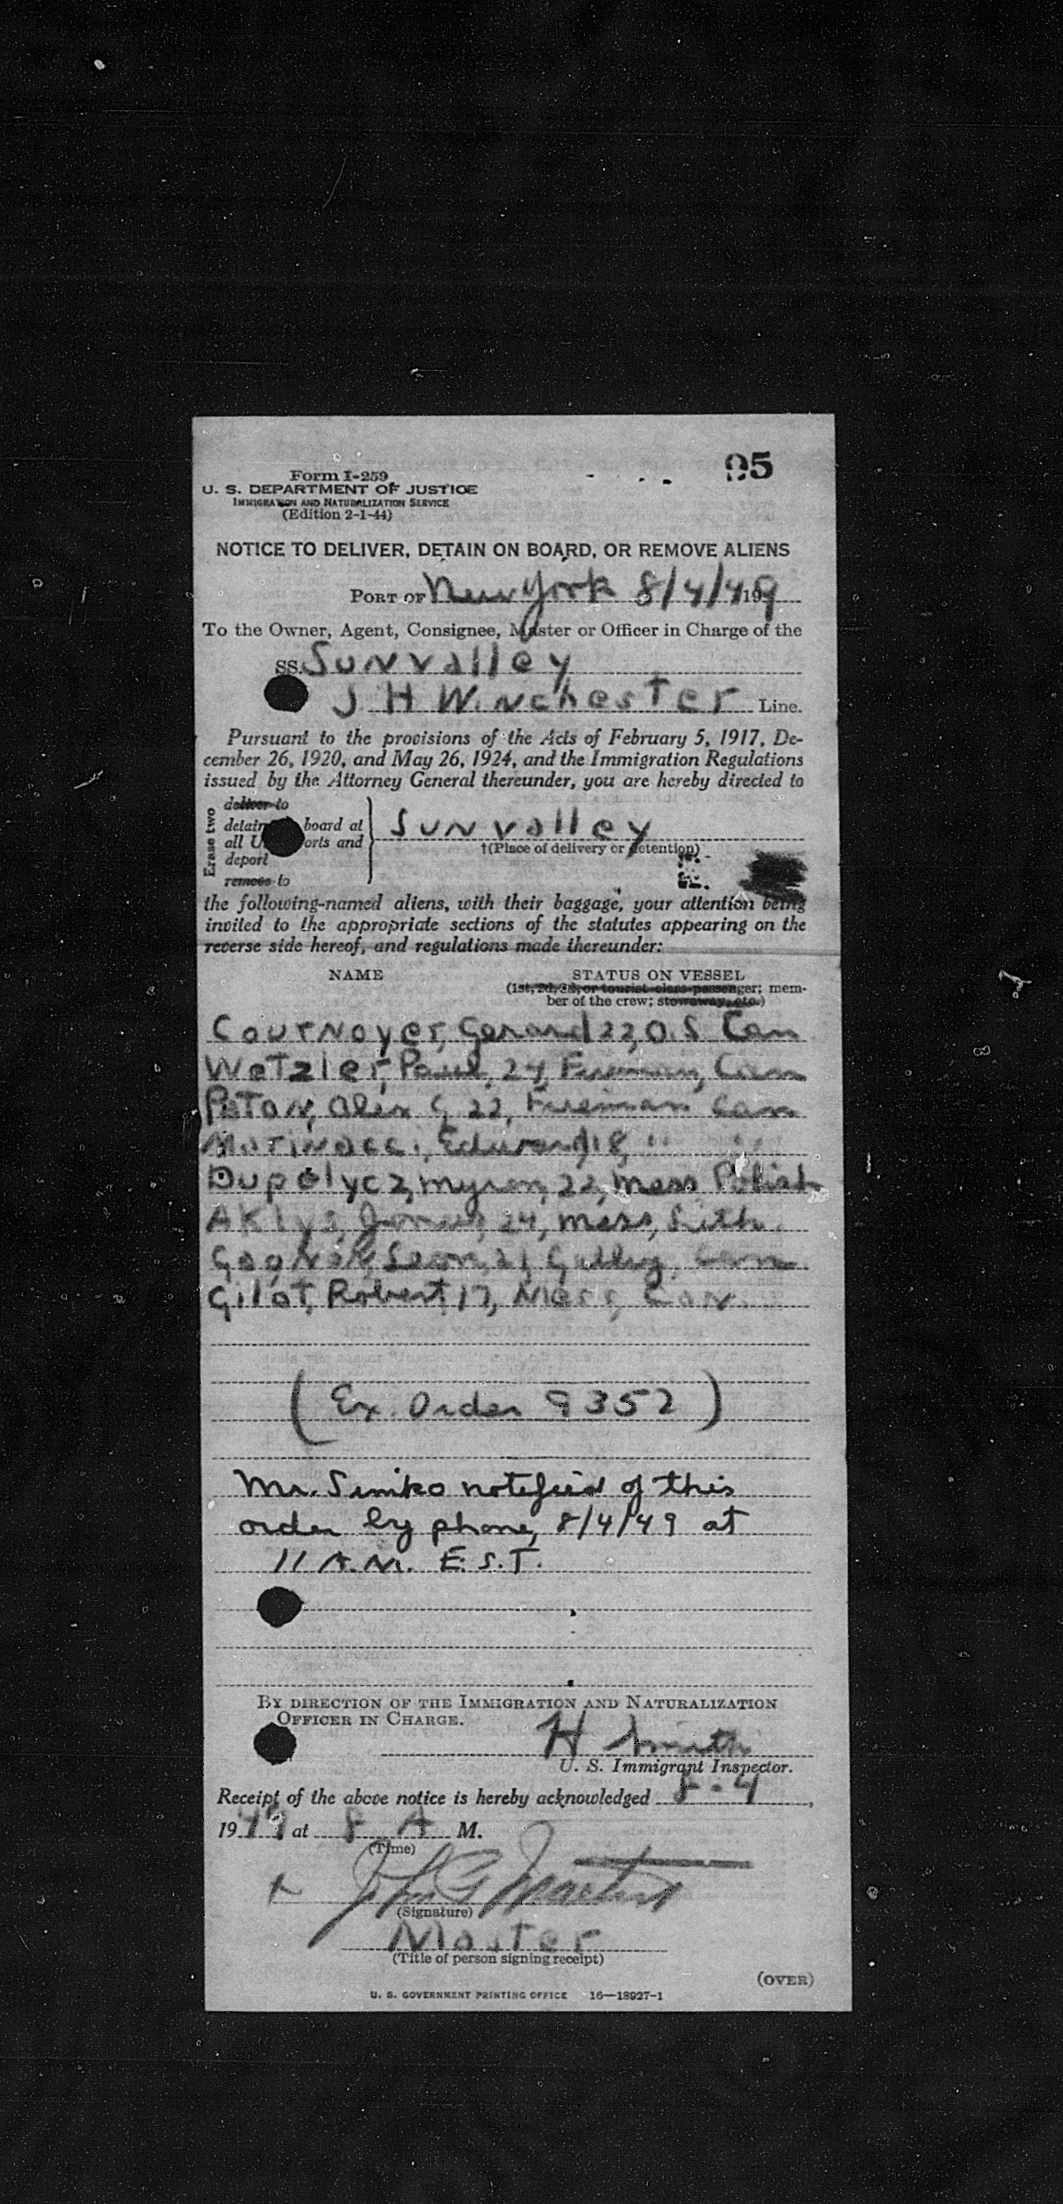 95
Form I-259
U. S. DEPARTMENT OF JUSTICE
IMMIGRATION AND NATURALIZATION SERVICE
(Edition 2-1-44)
NOTICE TO DELIVER, DETAIN ON BOARD, OR REMOVE ALIENS
PORT OF New York 8/4/49
To the Owner, Agent, Consignee, Master or Officer in Charge of the
SS. Sunvalley
J H Winchester Line.
Pursuant to the provisions of the Acts of February 5, 1917, De-
cember 26, 1920, and May 26, 1924, and the Immigration Regulations
issued by the Attorney General thereunder, you are hereby directed to
Erase two
deliver to
detain board at
all U orts and
deport
remove to
Sunvalley
†(Place of delivery or detention)
the following-named aliens, with their baggage, your attention being
invited to the appropriate sections of the statutes appearing on the
reverse side hereof, and regulations made thereunder:
NAME STATUS ON VESSEL
(1st, 2d, 3d, or tourist class passenger; mem-
ber of the crew; stowaway, etc.)
Cournoyer, Gerard 22, O.S Can
Wetzler, Paul, 24, Fireman, Can
Paton, Alex G 22, Fireman Can
Marinacci, Edward, 18, " "
Dupolycz, Myron, 22, Mess Polish
Aklys, Jonas, 24, Mess, Lith.
Leon, 21, Galley, Can
Gilot, Robert, 17, Mess, Can.
(Ex. Order 9352)
Mr. Simko notified of this
order by phone, 8/4/49 at
11 A.M. E.S.T.
BY DIRECTION OF THE IMMIGRATION AND NATURALIZATION
OFFICER IN CHARGE.
H Smith
U. S. Immigrant Inspector.
Receipt of the above notice is hereby acknowledged 8-4,
1949 at 8 A M.
(Time)
John
(Signature)
Master
(Title of person signing receipt)
(OVER)
U. S. GOVERNMENT PRINTING OFFICE 16—18927-1